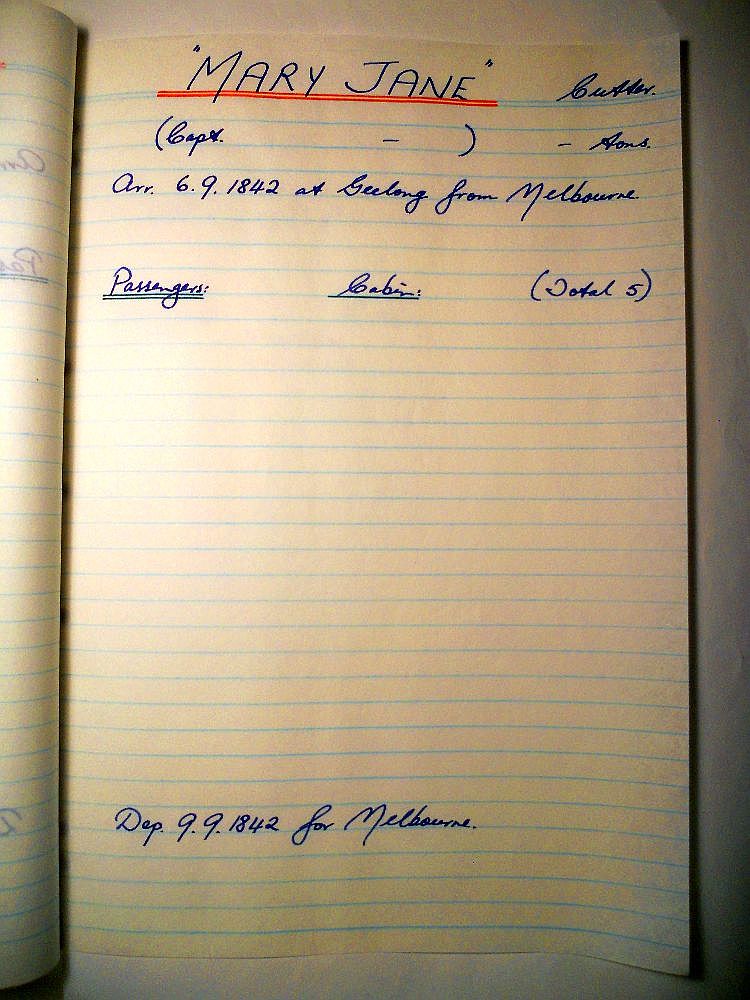 "MARY JANE" Cutter.
(Capt. - ) - tons.
Arr. 6.9.1842 at Geelong from Melbourne.
Passengers: Cabin: (Total 5)
Dep. 9.9.1842 for Melbourne.